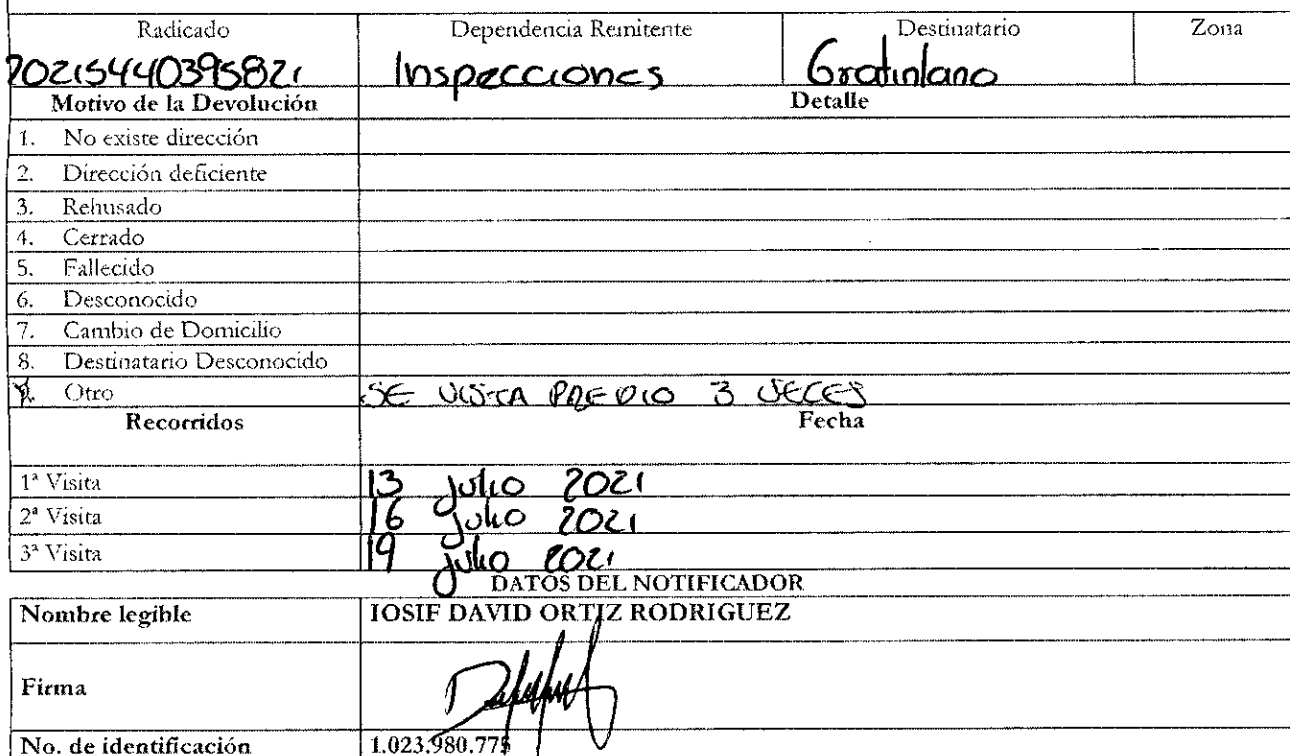 Radicado Dependencia Remitente Destinatario Zona
20215440395821 Inspecciones Gratinlano
Motivo de la Devolución Detalle
1. No existe dirección
2. Dirección deficiente
3. Rehusado
4. Cerrado
5. Fallecido
6. Desconocido
7. Cambio de Domicilio
8. Destinatario Desconocido
Otro SE VISITA PREDIO 3 VECES
Recorridos Fecha
1ª Visita 13 julio 2021
2ª Visita 16 julio 2021
3ª Visita 19 julio 2021
DATOS DEL NOTIFICADOR
Nombre legible IOSIF DAVID ORTIZ RODRIGUEZ
Firma
No. de identificación 1.023.980.775